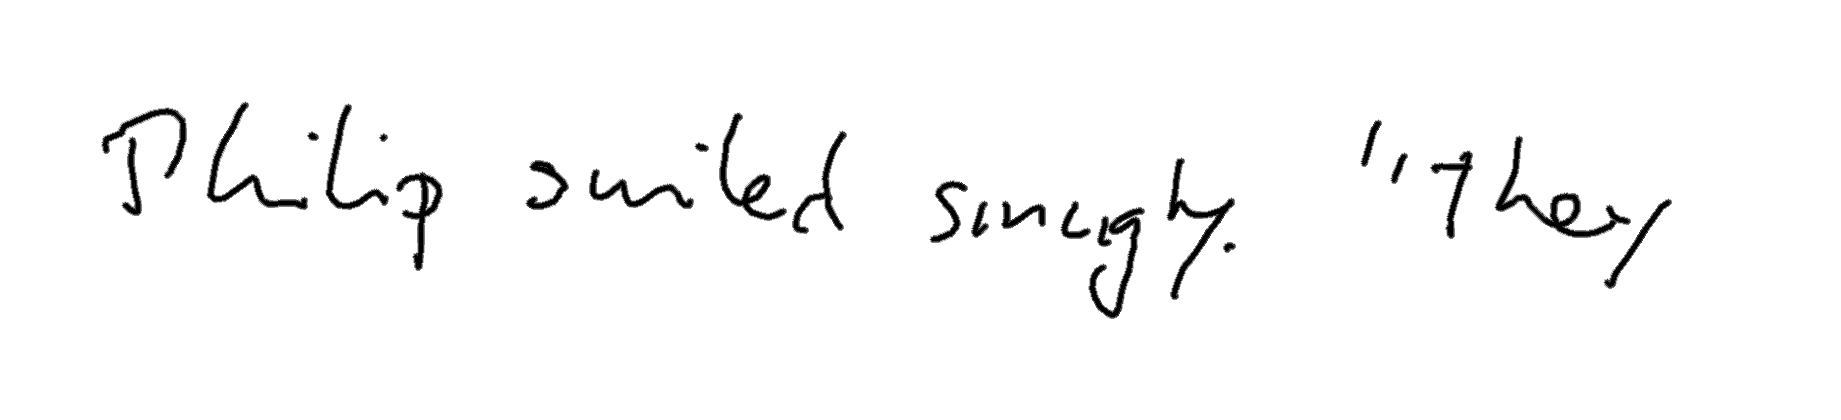 Philip smiled smugly. "They